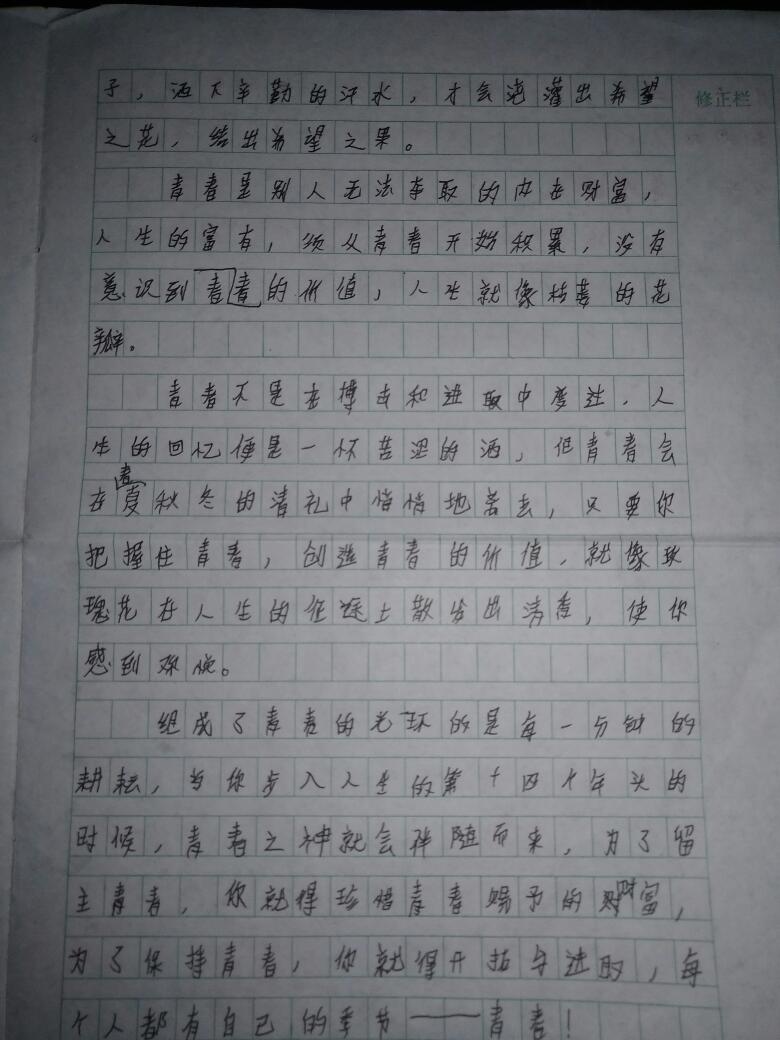 子，洒下辛勤的汗水，才会浇灌出希望
修正栏
之花，结出希望之果。
青春是别人无法夺取的内在财富，
人生的富有，须从青春开始积累，没有
意识到青春的价值，人生就像枯萎的花
瓣。
青春不是在搏击和进取中度过，人
生的回忆便是一杯苦涩的酒，但青春会
在春夏秋冬的洗礼中悄悄地离去，只要你
把握住青春，创造青春的价值，就像玫
瑰花在人生的征途上散发出清香，使你
感到欢悦。
组成了青春的光环的是每一分钟的
耕耘，当你步入人生的第十四个年头的
时候，青春之神就会伴随而来，为了留
主青春，你就得珍惜青春赐予的财富，
为了保持青春，你就得开拓与进取，每
个人都有自己的季节——青春！